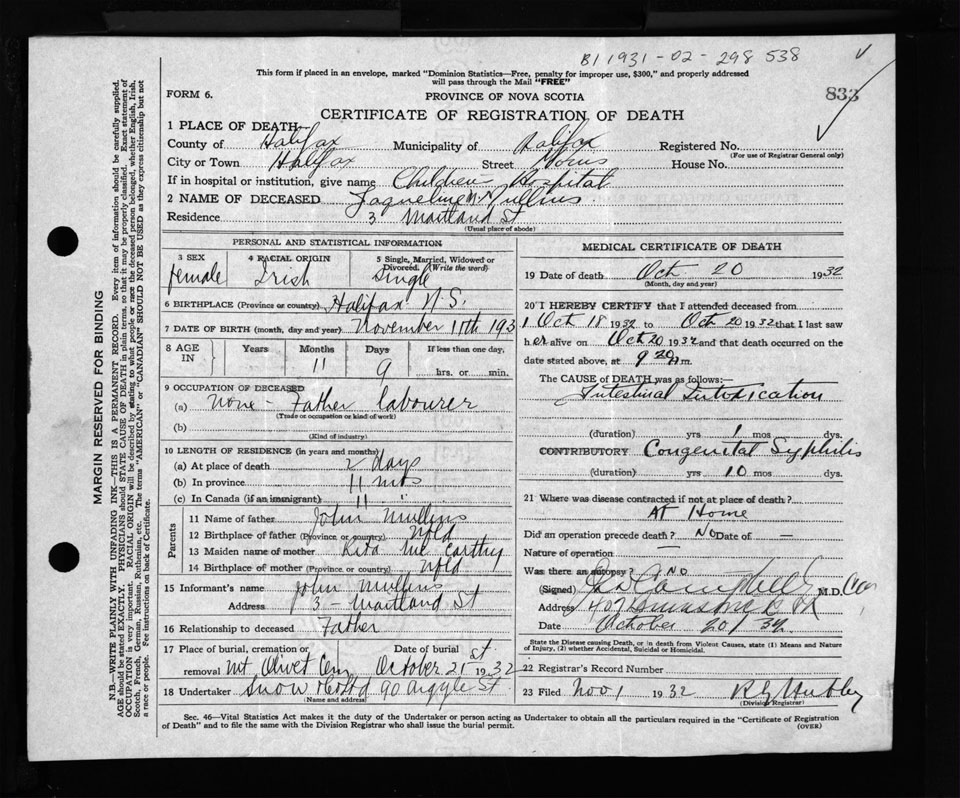 B1 1931-02-298 538
This form if placed in an envelope, marked "Dominion Statistics—Free, penalty for improper use, $300," and properly addressed
will pass through the Mail "FREE"
FORM 6.
PROVINCE OF NOVA SCOTIA
833
CERTIFICATE OF REGISTRATION OF DEATH
1 PLACE OF DEATH—
County of Halifax Municipality of Halifax Registered No.
(For use of Registrar General only)
City or Town Halifax Street Morris House No.
If in hospital or institution, give name Children's Hospital
2 NAME OF DECEASED Jaqueline Mullins
Residence 3 Maitland St
(Usual place of abode)
PERSONAL AND STATISTICAL INFORMATION
3 SEX 4 RACIAL ORIGIN 5 Single, Married, Widowed or Divorced. (Write the word)
female Irish Single
6 BIRTHPLACE (Province or country) Halifax N.S.
7 DATE OF BIRTH (month, day and year) November 11th 193
8 AGE IN Years Months Days If less than one day,
11 9 hrs. or min.
9 OCCUPATION OF DECEASED
(a) None - Father labourer
(Trade or occupation or kind of work)
(b)
(Kind of industry)
10 LENGTH OF RESIDENCE (in years and months)
(a) At place of death 2 days
(b) In province 11 mts
(c) In Canada (if an immigrant) 11 "
Parents
11 Name of father John Mullins
12 Birthplace of father (Province or country) Nfld
13 Maiden name of mother Rita Mc Carthy
14 Birthplace of mother (Province or country) Nfld
15 Informant's name John Mullins
Address 3 - Maitland St
16 Relationship to deceased Father
17 Place of burial, cremation or removal Mt Olivet Cem Date of burial October 21st 1932
18 Undertaker Snow 90 Argyle St
(Name and address)
MEDICAL CERTIFICATE OF DEATH
19 Date of death Oct 20 1932
(Month, day and year)
20 I HEREBY CERTIFY that I attended deceased from
Oct 18 1932 to Oct 20 1932 that I last saw
her alive on Oct 20 1932 and that death occurred on the
date stated above, at 9 20 m.
The CAUSE of DEATH was as follows:—
Intestinal Intoxication
(duration) yrs 1 mos dys.
CONTRIBUTORY Congenital Syphilis
(duration) yrs 10 mos dys.
21 Where was disease contracted if not at place of death?
At Home
Did an operation precede death? No Date of —
Nature of operation —
Was there an autopsy? No
(Signed) M.D.
Address 407
Date October 20/32
State the Disease causing Death, or in death from Violent Causes, state (1) Means and Nature
of Injury, (2) whether Accidental, Suicidal or Homicidal.
22 Registrar's Record Number
23 Filed Nov 1 1932
(Division Registrar)
Sec. 46—Vital Statistics Act makes it the duty of the Undertaker or person acting as Undertaker to obtain all the particulars required in the "Certificate of Registration
of Death" and to file the same with the Division Registrar who shall issue the burial permit.
(OVER)
MARGIN RESERVED FOR BINDING
N.B.—WRITE PLAINLY WITH UNFADING INK—THIS IS A PERMANENT RECORD. Every item of information should be carefully supplied.
AGE should be stated EXACTLY. PHYSICIANS should STATE CAUSE OF DEATH in plain terms, so that it may be properly classified. Exact statement of
OCCUPATION is very important. RACIAL ORIGIN will be described by stating to what people or race the deceased person belonged, whether English, Irish,
Scotch, French, German, Russian, Ruthenian, etc. The terms "AMERICAN" or "CANADIAN" SHOULD NOT BE USED as they express citizenship but not
a race or people. Fee instructions on back of Certificate.